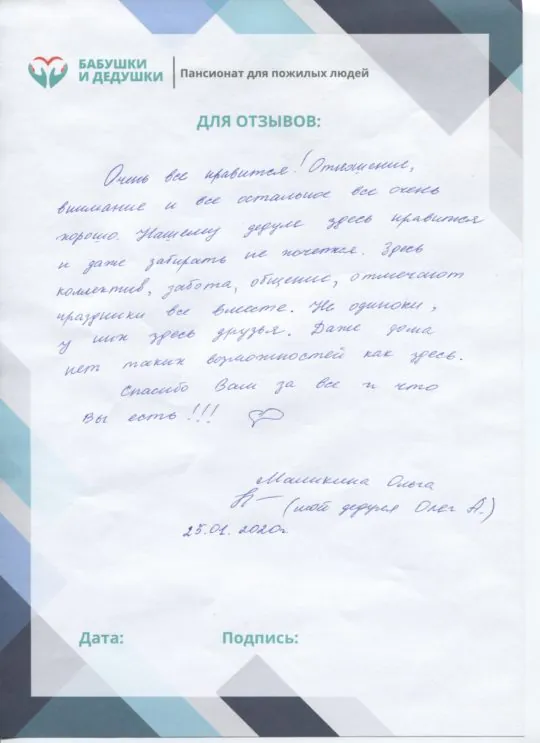 БАБУШКИ
И ДЕДУШКИ
Пансионат для пожилых людей
ДЛЯ ОТЗЫВОВ:
Очень все нравится! Отношение,
внимание и все остальное все очень
хорошо. Нашему дедуле здесь нравится
и даже забирать не хочется. Здесь
коллектив, забота, общение, отмечают
праздники все вместе. Не одиноки,
у них здесь друзья. Даже дома
нет таких возможностей как здесь.
Спасибо Вам за все и что
Вы есть!!!
Ольга
(мой дедуля Олег А.)
25.01.2020г.
Дата:
Подпись: